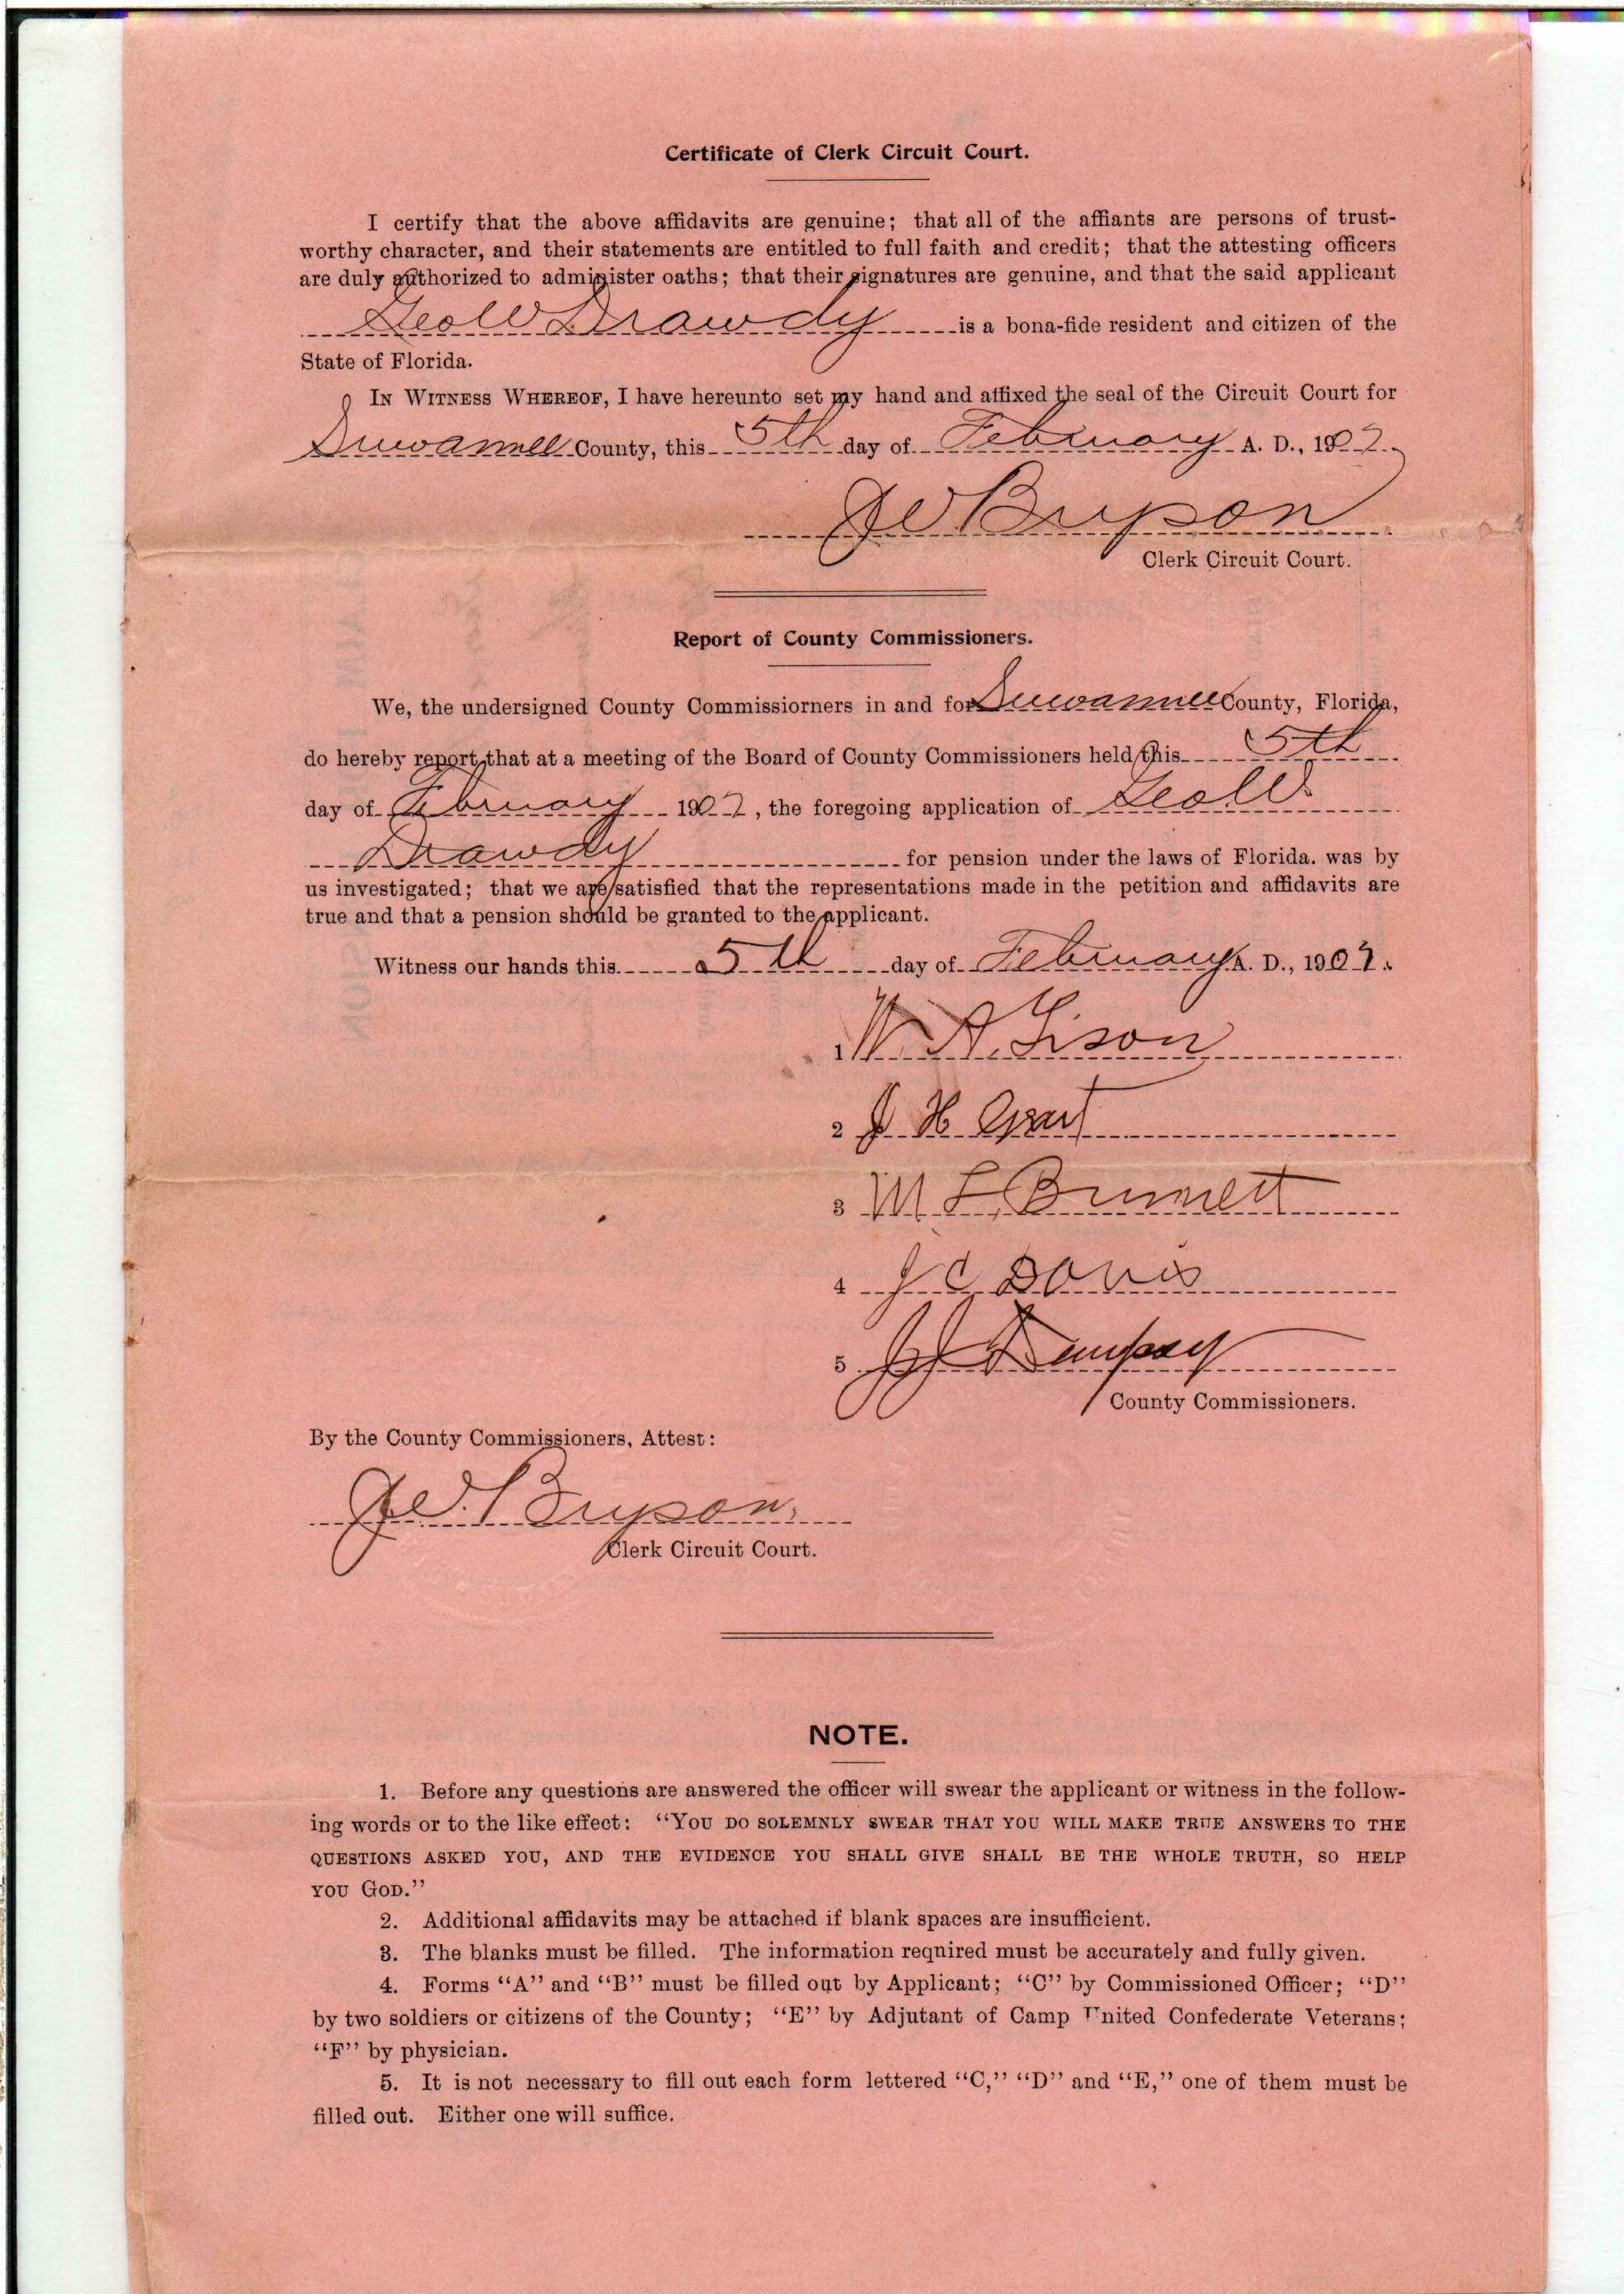 Certificate of Clerk Circuit Court.
I certify that the above affidavits are genuine; that all of the affiants are persons of trust-
worthy character, and their statements are entitled to full faith and credit; that the attesting officers
are duly authorized to administer oaths; that their signatures are genuine, and that the said applicant
Geo W Drawdy is a bona-fide resident and citizen of the
State of Florida.
IN WITNESS WHEREOF, I have hereunto set my hand and affixed the seal of the Circuit Court for
Suwannee County, this 5th day of February A. D., 190
J W Bryson
Clerk Circuit Court.
Report of County Commissioners.
We, the undersigned County Commissiorners in and for Suwannee County, Florida,
do hereby report that at a meeting of the Board of County Commissioners held this 5th
day of February 190 , the foregoing application of Geo W
Drawdy for pension under the laws of Florida. was by
us investigated; that we are satisfied that the representations made in the petition and affidavits are
true and that a pension should be granted to the applicant.
Witness our hands this 5th day of February A. D., 190
1 W. A.
2 J H Grant
3 M L
4 J C Davis
5 J J Dempsey
County Commissioners.
By the County Commissioners, Attest:
J W. Bryson
Clerk Circuit Court.
NOTE.
1. Before any questions are answered the officer will swear the applicant or witness in the follow-
ing words or to the like effect: "YOU DO SOLEMNLY SWEAR THAT YOU WILL MAKE TRUE ANSWERS TO THE
QUESTIONS ASKED YOU, AND THE EVIDENCE YOU SHALL GIVE SHALL BE THE WHOLE TRUTH, SO HELP
YOU GOD."
2. Additional affidavits may be attached if blank spaces are insufficient.
3. The blanks must be filled. The information required must be accurately and fully given.
4. Forms "A" and "B" must be filled out by Applicant; "C" by Commissioned Officer; "D"
by two soldiers or citizens of the County; "E" by Adjutant of Camp United Confederate Veterans;
"F" by physician.
5. It is not necessary to fill out each form lettered "C," "D" and "E," one of them must be
filled out. Either one will suffice.